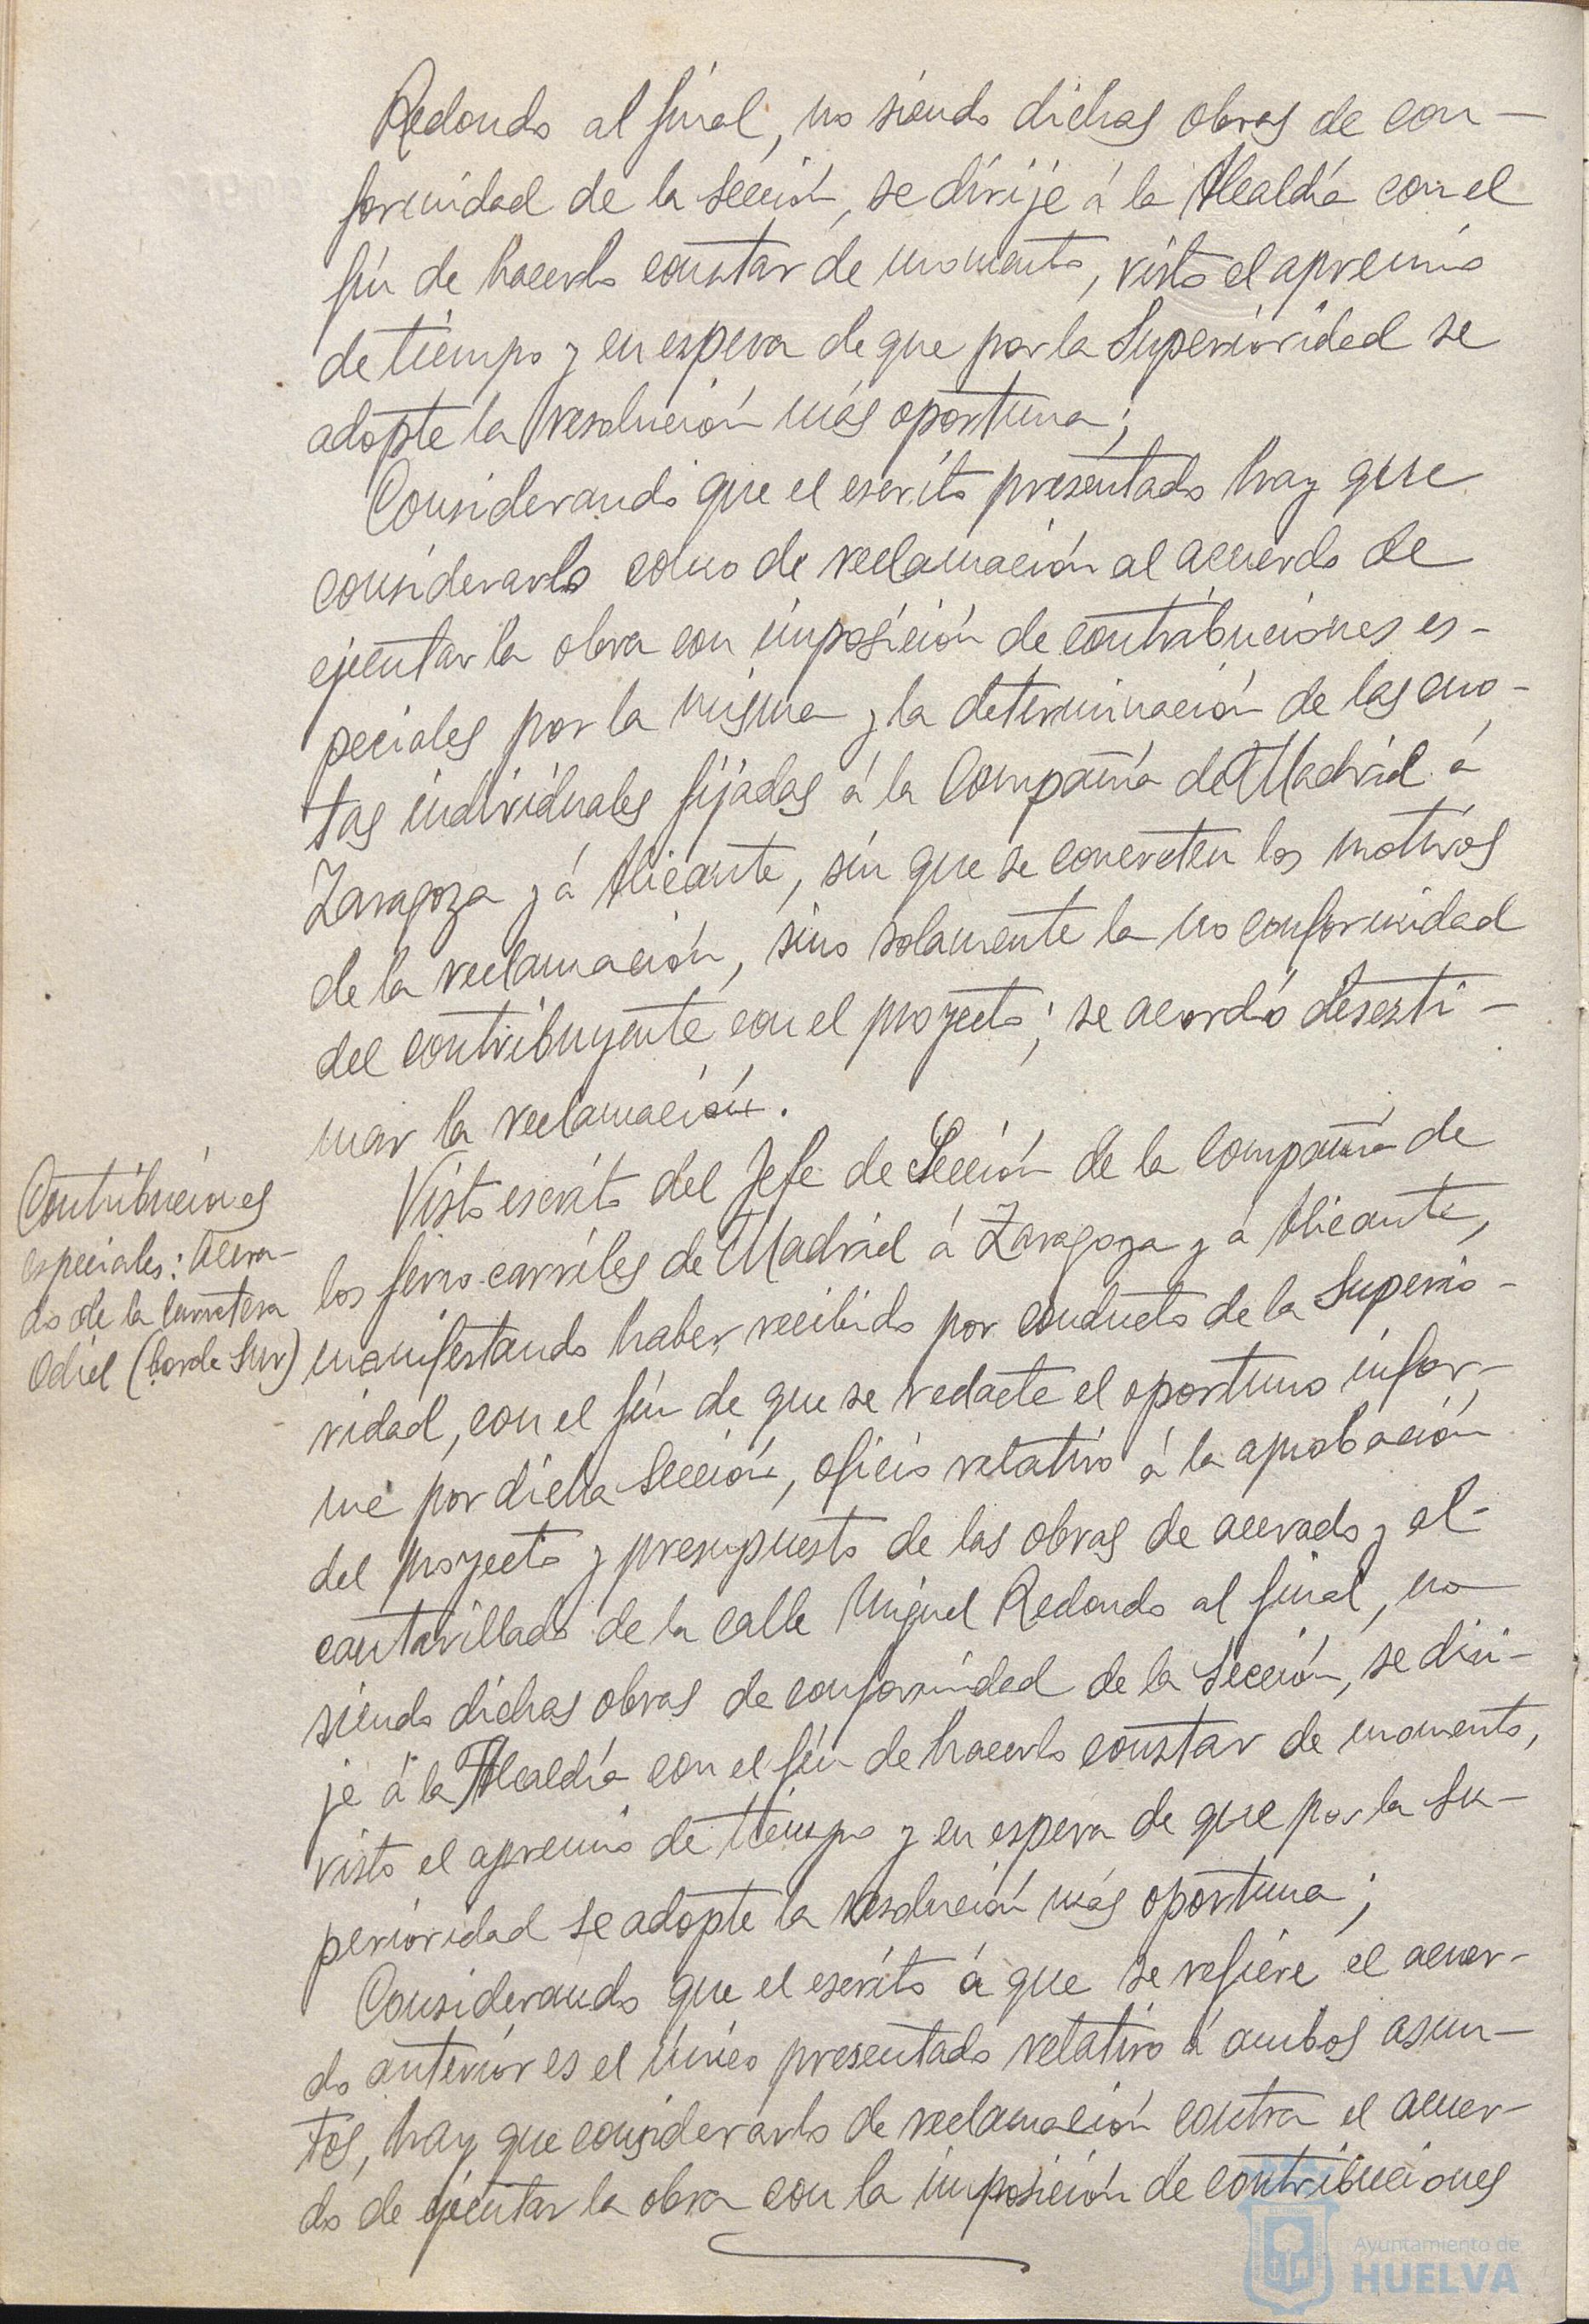 Redondo al final, no siendo dichas obras de con-
formidad de la sección, se dirije á la Alcaldía con el
fin de hacerlo constar de momento, visto el apremio
de tiempo y en espera de que por la Superioridad se
adopte la resolución más oportuna;
Considerando que el escrito presentado hay que
considerarlo como de reclamación al acuerdo de
ejecutar la obra con imposición de contribuciones es-
peciales por la misma y la determinación de las cuo-
tas individuales fijadas á la Compañía de Madrid á
Zaragoza y á Alicante, sin que se concreten los motivos
de la reclamación, sino solamente la no conformidad
del contribuyente con el proyecto; se acordó desesti-
mar la reclamación.
Contribuciones
especiales: Acera-
do de la Carretera
Odiel (borde Sur)
Visto escrito del Jefe de Sección de la Compañía de
los ferro-carriles de Madrid á Zaragoza y a Alicante,
manifestando haber recibido por conducto de la Superio-
ridad, con el fin de que se redacte el oportuno infor-
me por dicha Sección, oficio relativo á la aprobación
del proyecto y presupuesto de las obras de acerado y al-
cantarillado de la calle Miguel Redondo al final, no
siendo dichas obras de conformidad de la Sección, se diri-
je á la Alcaldía con el fin de hacerlo constar de momento,
visto el apremio de tiempo y en espera de que por la Su-
perioridad se adopte la resolución más oportuna;
Considerando que el escrito á que se refiere el acuer-
do anterior es el único presentado relativo á ambos asun-
tos, hay que considerarlo de reclamación contra el acuer-
do de ejecutar la obra con la imposición de contribuciones
Ayuntamiento de
HUELVA